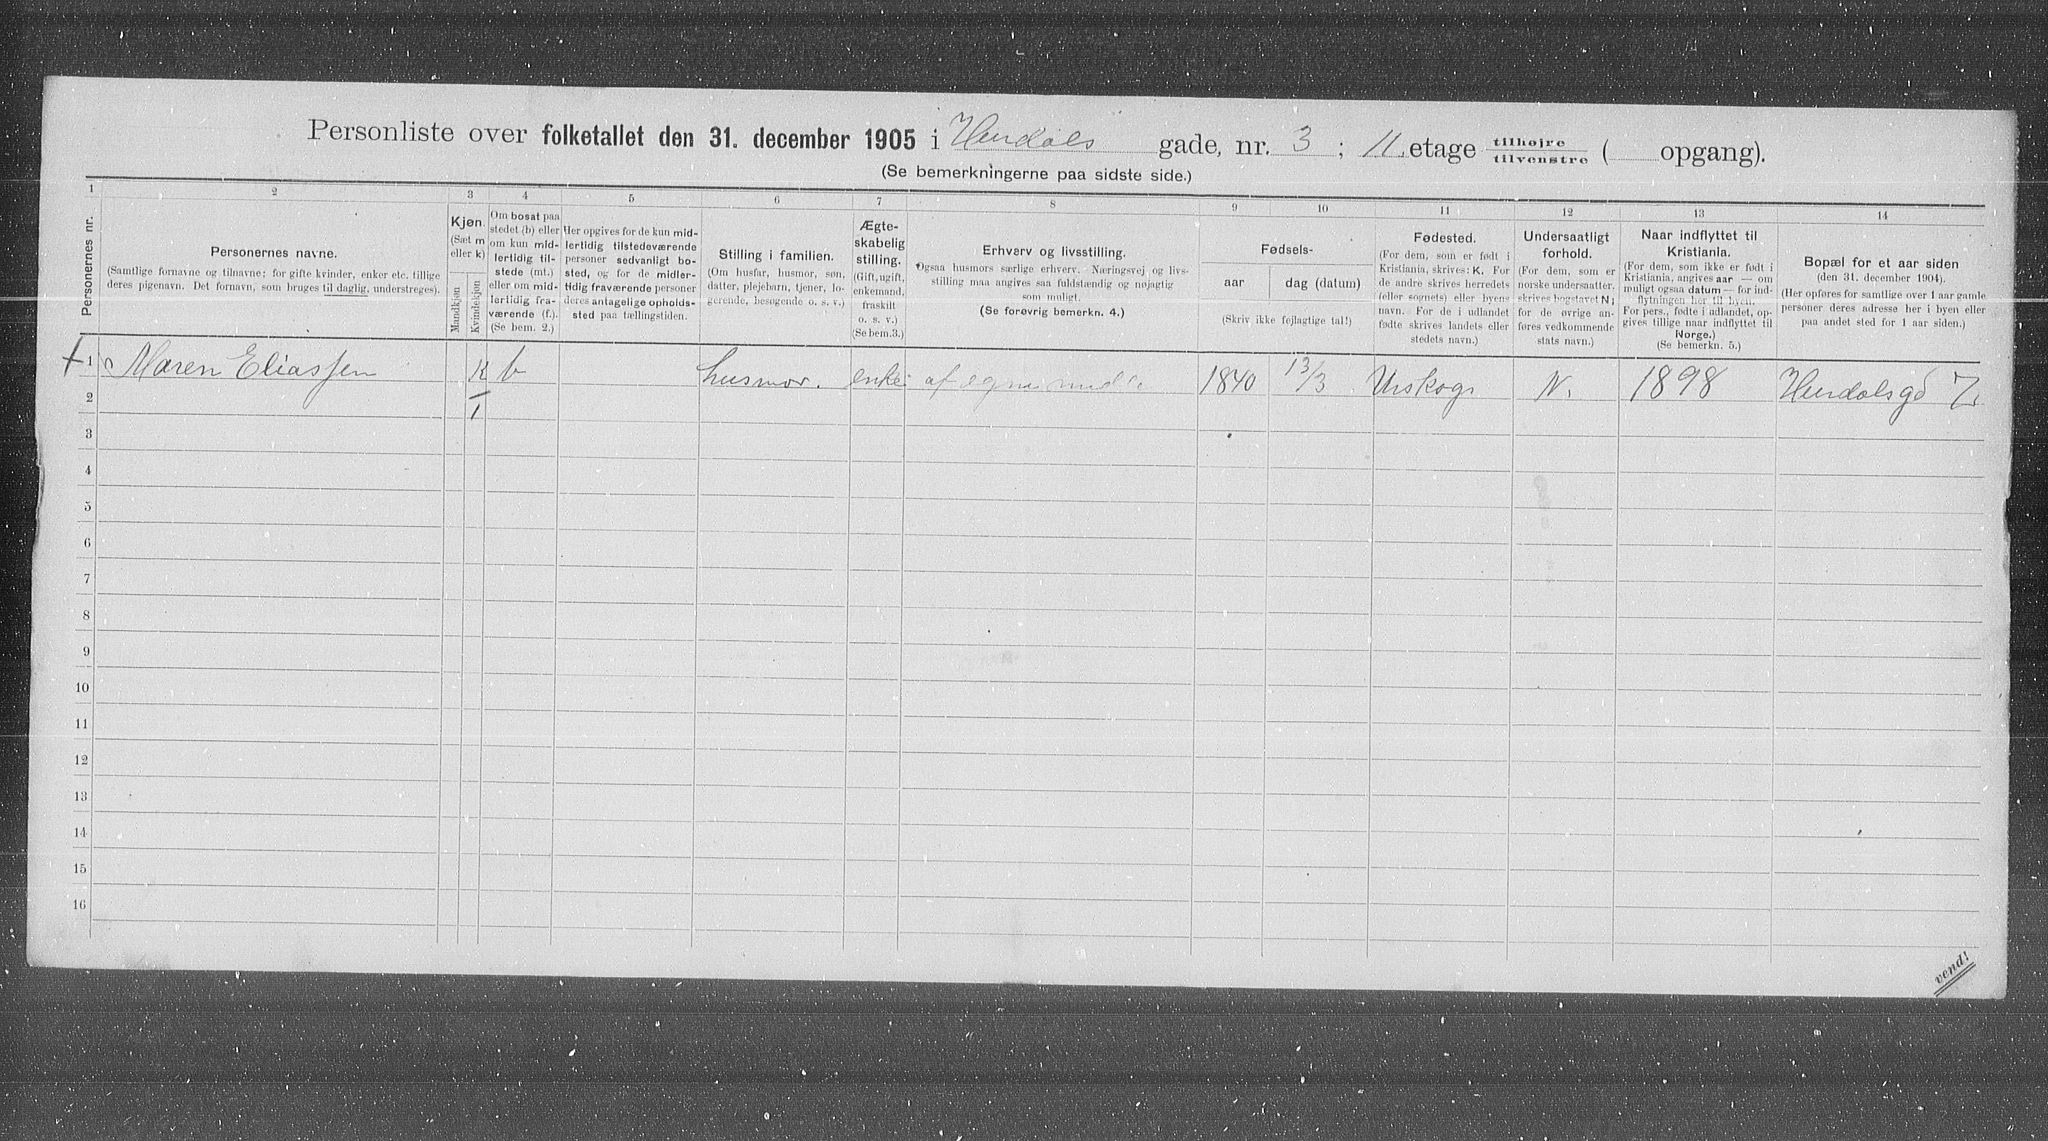 Personliste over folketallet den 31. december 1905 i Heimdals gade, nr. 3 ; II. etage tilhøjre tilvenstre ( opgang).
(Se bemerkningerne paa sidste side.)
1 2 3 4 5 6 7 8 9 10 11 12 13 14
Personernes nr.
Personernes navne.
(Samtlige fornavne og tilnavne; for gifte kvinder, enker etc. tillige
deres pigenavn. Det fornavn, som bruges til daglig, understreges).
Kjøn.
(Sæt m
eller k)
Mandkjøn
Kvindekjøn
Om bosat paa
stedet (b) eller
om kun mid-
lertidig til-
stede (mt.)
eller om mid-
lertidig fra-
værende (f.).
(Se bem. 2.)
Her opgives for de kun mid-
lertidig tilstedeværende
personer sedvanligt bo-
sted, og for de midler-
tidig fraværende personer
deres antagelige opholds-
sted paa tællingstiden.
Stilling i familien.
(Om husfar, husmor, søn,
datter, plejebarn, tjener, lo-
gerende, besøgende o. s. v.)
Ægte-
skabelig
stilling.
(Gift, ugift,
enkemand,
fraskilt
o. s. v.)
(Se bem.3.)
Erhverv og livsstilling.
Ogsaa husmors særlige erhverv. Næringsvej og livs-
stilling maa angives saa fuldstændig og nøjagtig
som muligt.
(Se forøvrig bemerkn. 4.)
Fødsels-
aar
dag (datum)
(Skriv ikke fejlagtige tal!)
Fødested.
(For dem, som er født i
Kristiania, skrives: K. For
de andre skrives herredets
(eller sognets) eller byens
navn. For de i udlandet
fødte skrives landets eller
stedets navn.)
Undersaatligt
forhold.
(For dem, som er
norske undersaatter,
skrives bogstavet N;
for de øvrige an-
føres vedkommende
stats navn.)
Naar indflyttet til
Kristiania.
(For dem, som ikke er født i
Kristiania, angives aar — om
muligt ogsaa datum — for ind-
flytningen her til byen.
For pers., fødte i udlandet, op-
gives tillige naar indflyttet til
Norge.)
(Se bemerkn. 5.)
Bopæl for et aar siden
(den 31. december 1904).
(Her opføres for samtlige over 1 aar gamle
personer deres adresse her i byen eller
paa andet sted for 1 aar siden.)
1 Maren Eliassen K b husmor. enke af egne midler 1840 13/3 Urskog N. 1898 Heimdalsgd 7
2 1
3
4
5
6
7
8
9
10
11
12
13
14
15
16
vend!